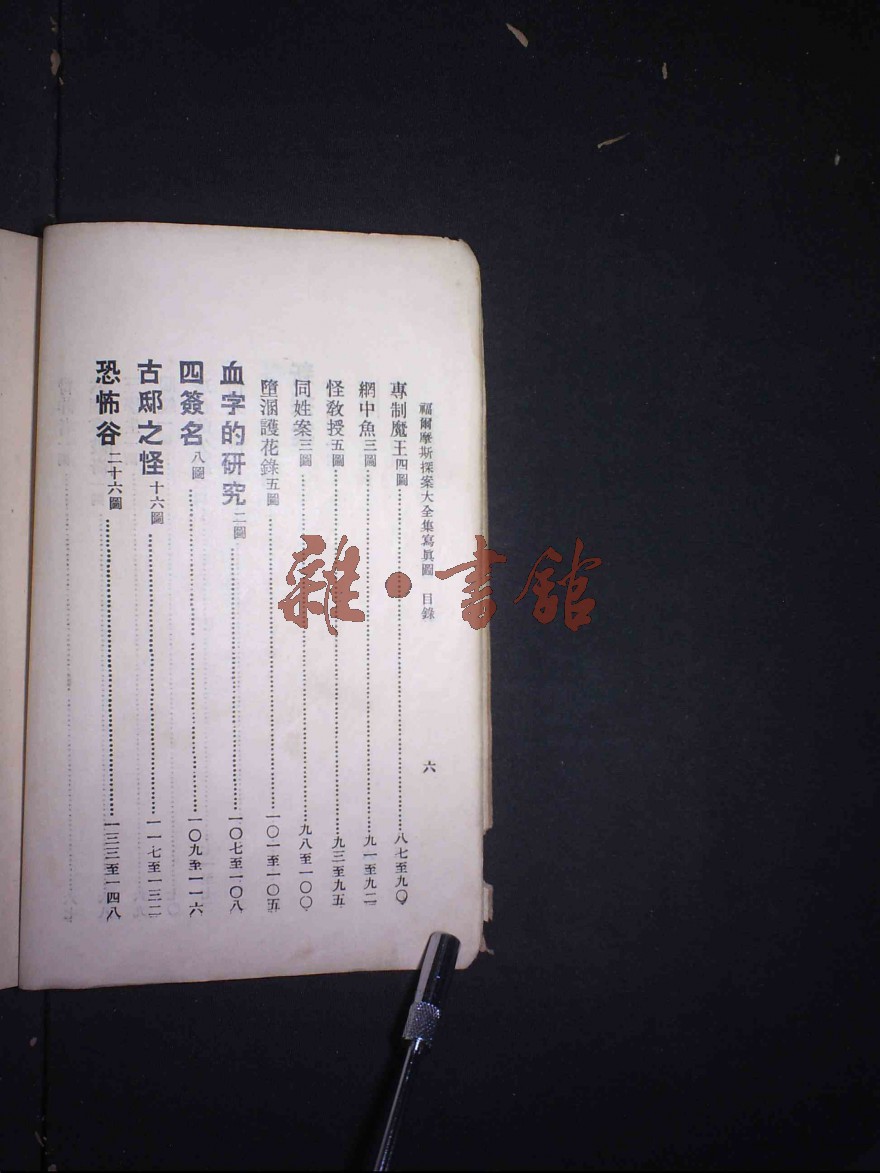 福爾摩斯探案大全集寫眞圖 目錄 六
專制魔王四圖……八七至九〇
網中魚三圖……九一至九二
怪教授五圖……九三至九五
同姓案三圖……九八至一〇〇
墮溷護花錄五圖……一〇一至一〇五
血字的研究二圖……一〇七至一〇八
四簽名八圖……一〇九至一一六
古邸之怪十六圖……一一七至一三二
恐怖谷二十六圖……一三三至一四八
雜·書館